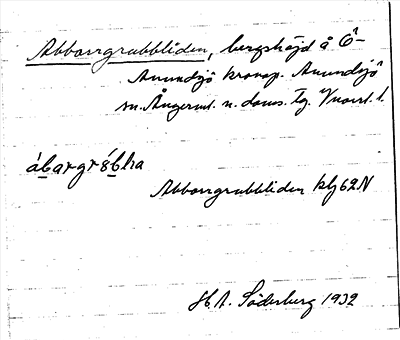 Abborrgrubbliden, bergshöjd å Ö-
Anundsjö kronop. Anundsjö
sn. Ångerml. n. doms. Tg.
ábargrǒbḷıa
Abborrgrubbliden blj 62 N
H. A. Söderberg 1932